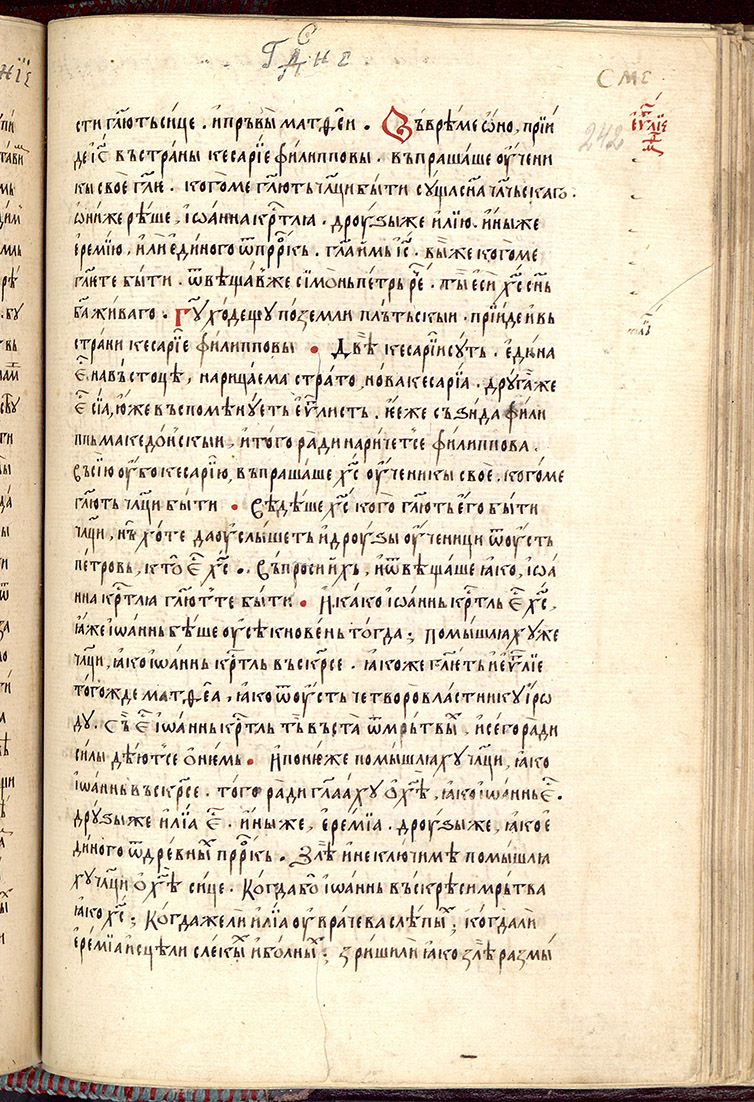 Гⷭ҇дне
СМЕ
242
сти гл҃ють си́це . и҆ пръвы матѳе́и . Въ врѣме ѡ҆́но , прїи́
де і҆с҃ въ страны кесарїе фили́пповы . въпрашаше оу҆чени
кы своѐ гл҃и . кого̀ ме гл҃ють чл҃ци бы́ти сущ҃а сн҃а чл҃чьскаго .
ѡ҆ни́ же рѣше , і҆ѡа́нна крⷭ҇тлꙗ . дроуѕы́ же и҆лїю . и҆ны же
ереми́ю , и҆лѝ е҆ди́ного ѿ прⷪ҇ркъ . гл҃а и҆̀мь і҆с҃ . вы́ же кого̀ ме
гл҃ете бы́ти . ѿвѣща́в же си́мѡнь пе́трь рⷱ҇е . ты̀ е҆сѝ хс҃ сн҃ь
ба҃ жива́го . Гꙋ҃ ходещꙋ по земли плъ́тьскыи . прїи́де и҆ вь
стра́ни кесарїе фили́пповы . Двѣ̀ кесарїи суть . е҆ди́на
е҆ⷭ҇ на въстоцѣ , нарицаема стра́то , но́ва кесарїа . дрꙋга́ же
е҆ⷭ҇ сїа , ю҆́же въспоме́нꙋеть е҆ѵⷢ҇листь . ю҆́еже съзи́да фили
ппь македо́нскыи , и҆ того̀ ра́ди нари́четсе фили́ппова .
Въ сїю оу҆́бо кесарі́ю , въпрашаше хс҃ оу҆ченикы своѐ . кого̀ ме
гл҃ють чл҃ци бы́ти . Вѣдѣше хс҃ кого̀ гл҃ють е҆го̀ бы́ти
чл҃ци , нъ̀ хо́те да оу҆слы́шеть и҆ дроуѕы оу҆чени́ци ѿ оу҆́сть
пе́тровь , кто̀ е҆ⷭ҇ хс҃ . Въпросѝ и҆хь , и҆ ѿвѣщаше ꙗ҆ко , і҆ѡа́
нна крⷭ҇тлꙗ гл҃ють те бы́ти . И҆ ка́ко і҆ѡа́ннь крⷭ҇тль е҆ⷭ҇ хс҃ ,
ꙗ҆́же і҆ѡа́ннь бѣ́ше оу҆сѣ́кновень то́гда ; помы́шлꙗхꙋ же
чл҃ци , ꙗ҆ко і҆ѡа́ннь крⷭ҇тль въскрⷭ҇се . ꙗ҆коже гл҃еть и҆ е҆ѵⷢ҇лїе
того́жде матѳе́а , ꙗ҆ко ѿ оу҆́сть четворовла́стнику і҆́рѡ
дꙋ . съ̀ е҆ⷭ҇ і҆ѡа́ннь крⷭ҇тль тъ̀ въста̀ ѿ мрь́твыⷯ , и҆ сего̀ ра́ди
силы дѣ́ютсе ѡ҆ не́мь . И҆ поне́же помы́шлꙗхꙋ чл҃ци , ꙗ҆ко
і҆ѡа́ннь въскрⷭ҇се . того̀ ра́ди гл҃аахꙋ ѡ҆ хс҃ѣ , ꙗ҆ко і҆ѡа́ннь е҆ⷭ҇ .
дрꙋѕы́ же и҆лїа е҆ⷭ҇ . и҆ны же , е҆ремїа . дроуѕы́ же , ꙗ҆ко е҆
ди́ного ѿ дре́вныⷯ прⷪ҇ркь . Злѣ̀ и҆ неклю́чимѣ помы́шлꙗ
хꙋ чл҃ци ѡ҆ хс҃ѣ си́це . Когда́ бо і҆ѡа́ннь въскрѣ́си мрь́тва
ꙗ҆ко хс҃ ; Когда́ же лѝ и҆лїа оу҆врачева слѣпы́ⷯ ; когда́ лѝ
е҆реми́а и҆сцѣ́ли слекыⷯ и҆ болныⷯ ; зри́ши ли ꙗ҆ко злѣ̀ размы́